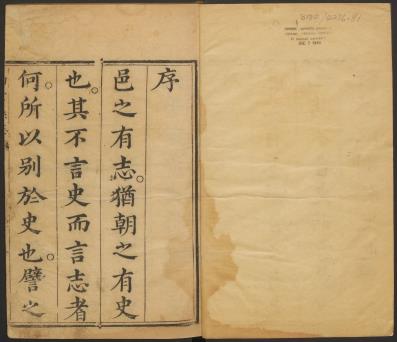 序
邑之有志。猶朝之有史
也。其不言史而言志者
何。所以别於史也。譬之